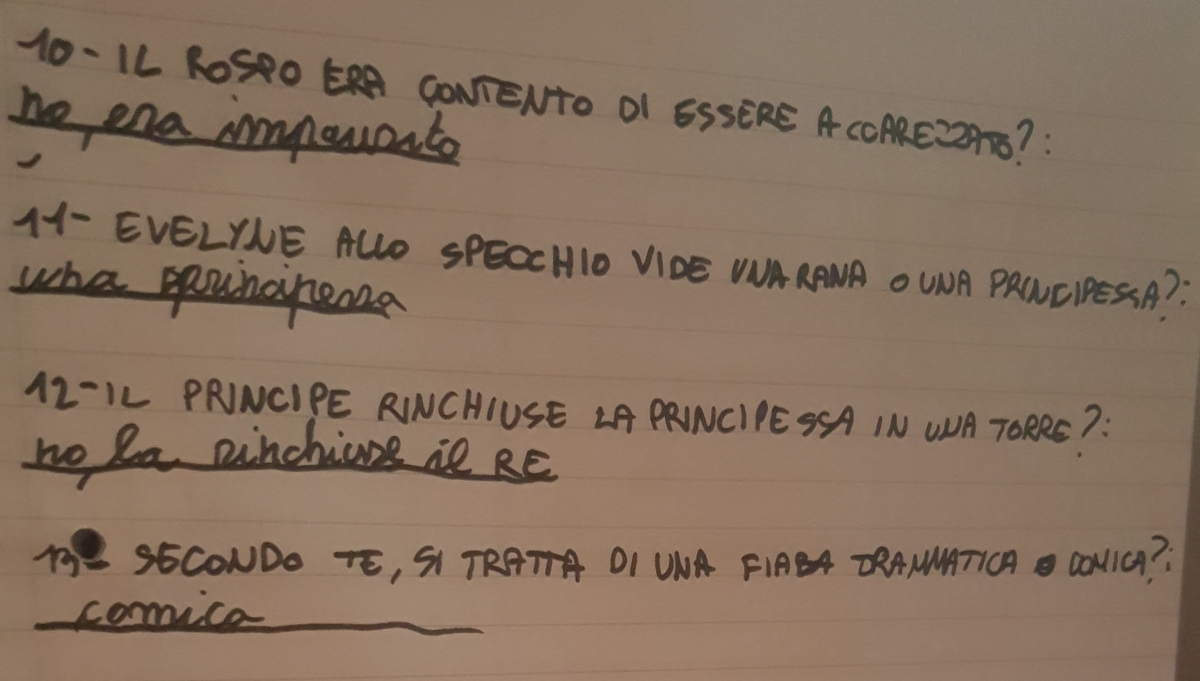 10- IL ROSPO ERA CONTENTO DI ESSERE ACCAREZZATO?:
no, era impaurito
11- EVELYNE ALLO SPECCHIO VIDE UNA RANA O UNA PRINCIPESSA?:
una principessa
12- IL PRINCIPE RINCHIUSE LA PRINCIPESSA IN UNA TORRE?:
no, la rinchiuse il RE
13- SECONDO TE, SI TRATTA DI UNA FIABA DRAMMATICA O COMICA?:
comica